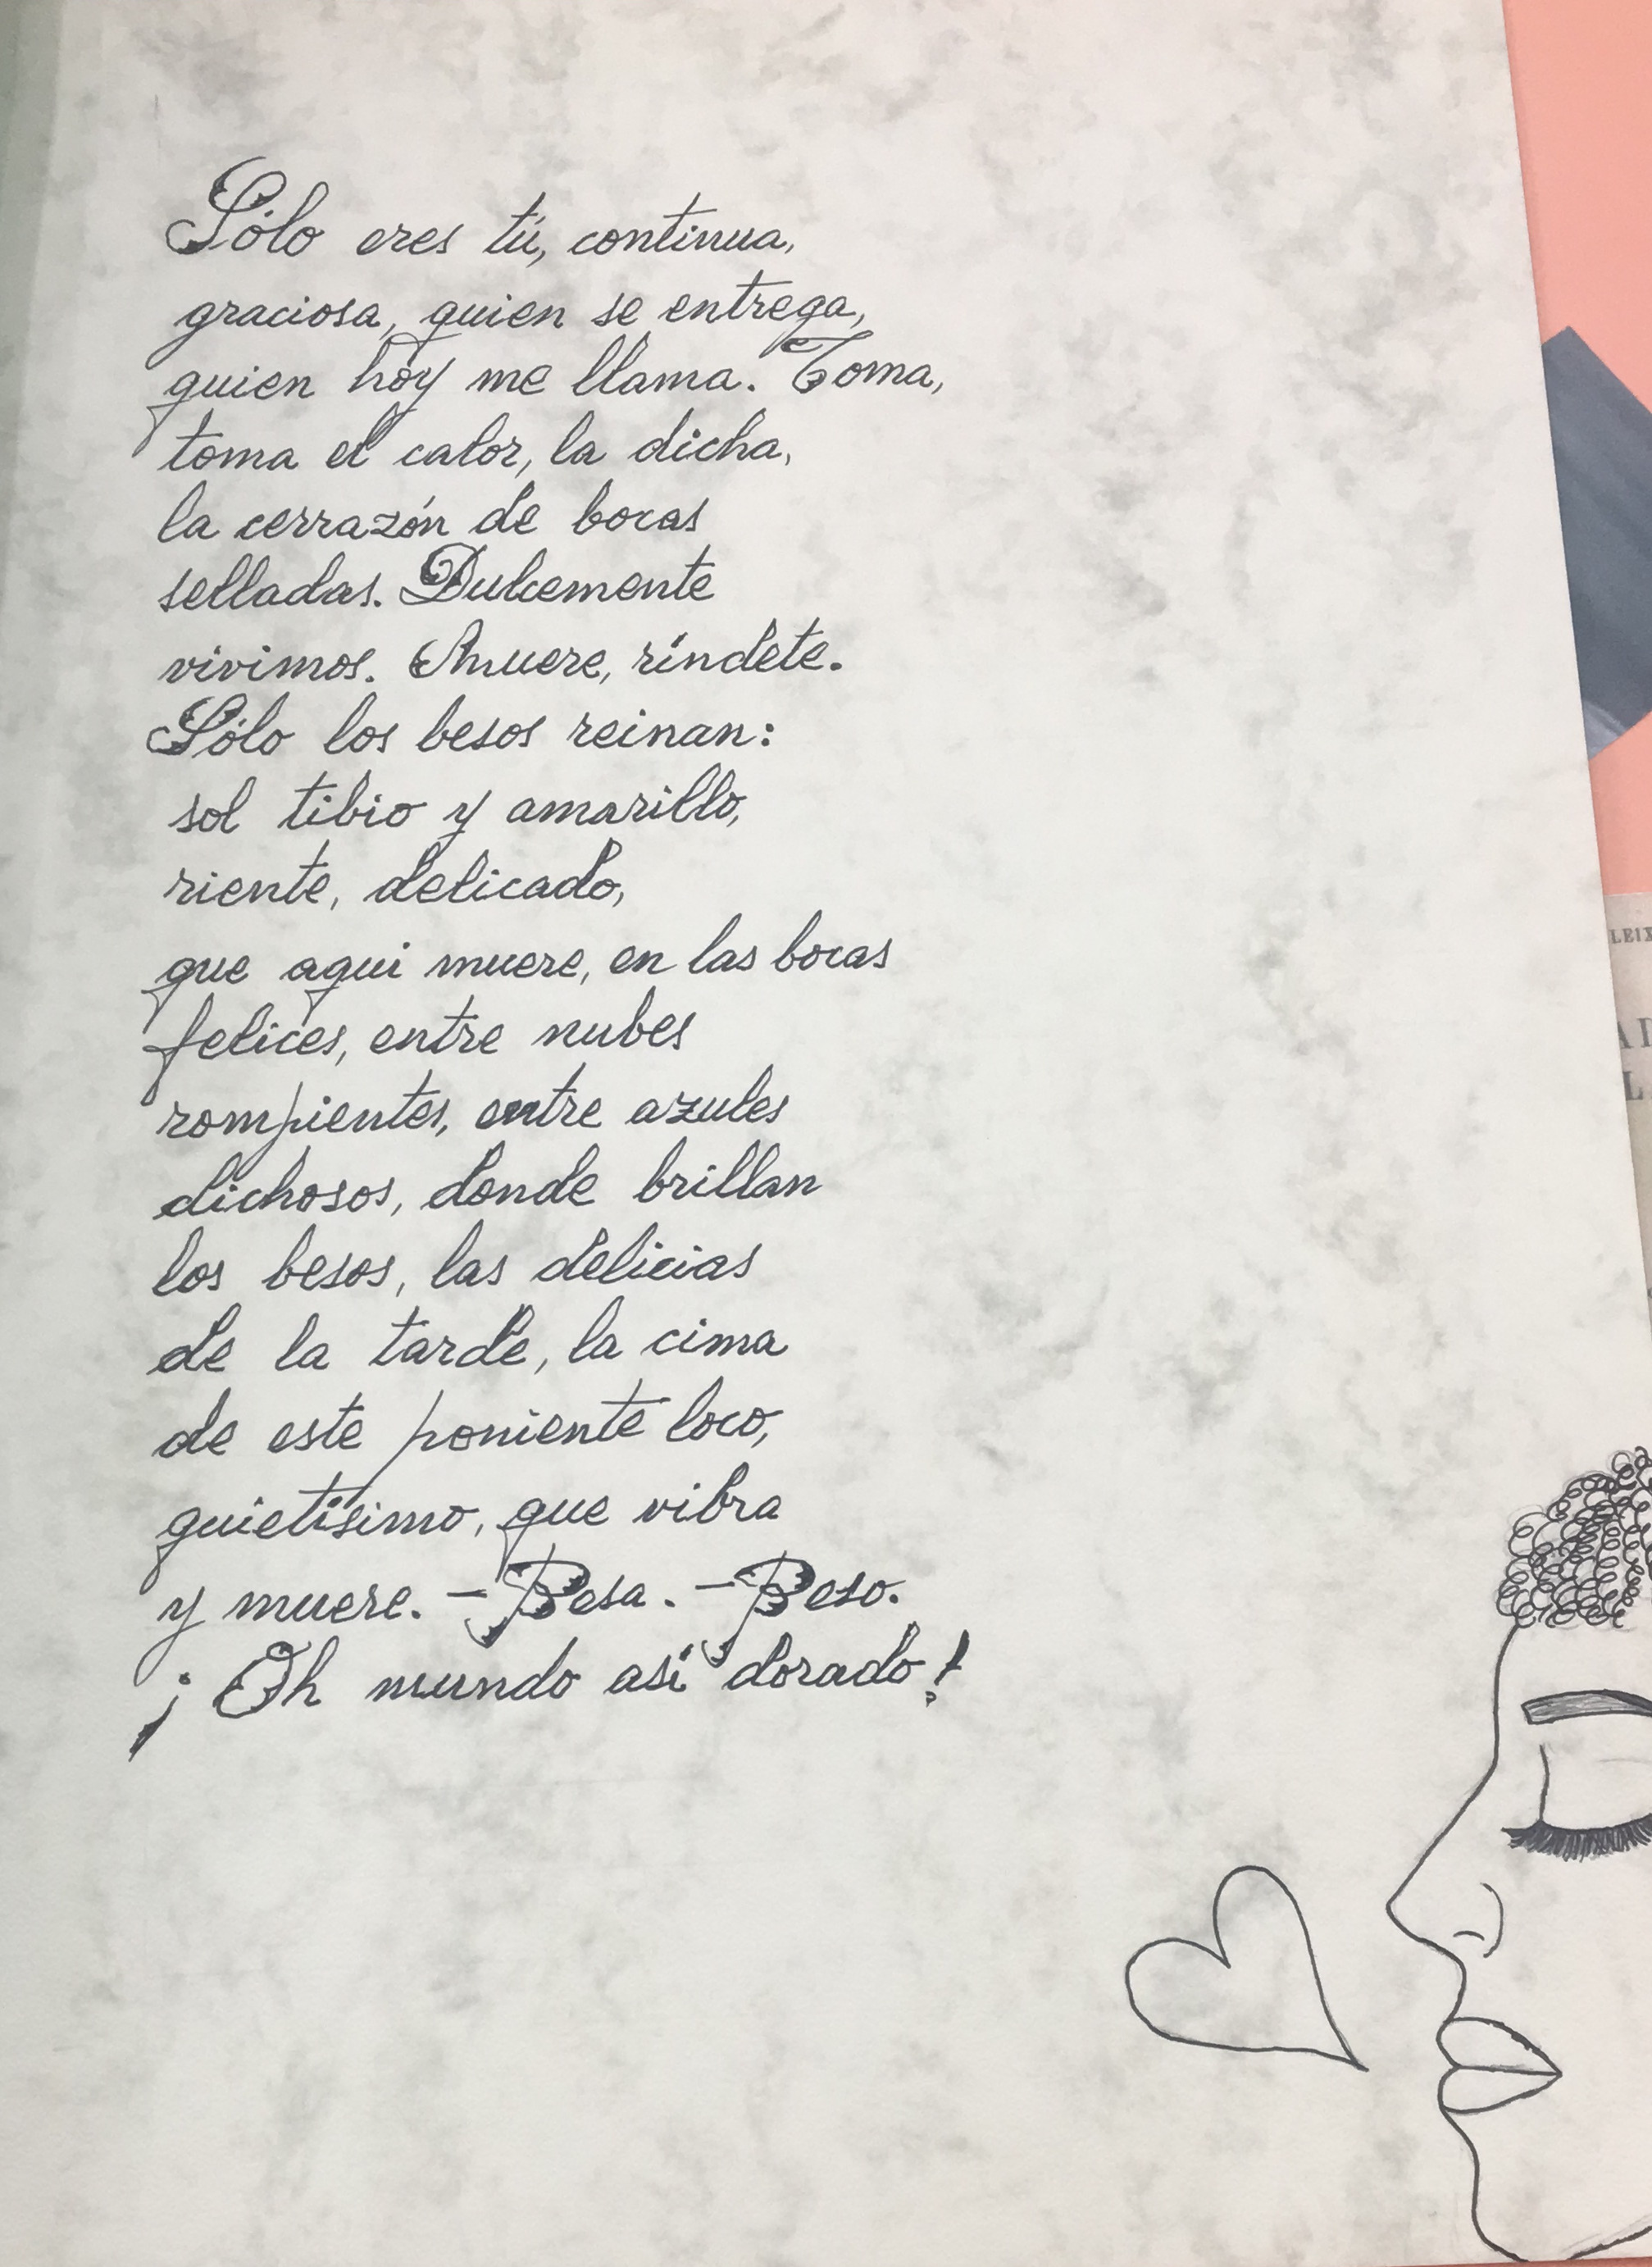 Sólo eres tú, continua,
graciosa, quien se entrega,
quien hoy me llama. Toma,
toma el calor, la dicha,
la cerrazón de bocas
selladas. Dulcemente
vivimos. Muere, ríndete.
Sólo los besos reinan:
sol tibio y amarillo,
riente, delicado,
que aqui muere, en las bocas
felices, entre nubes
rompientes, entre azules
dichosos, donde brillan
los besos, las delicias
de la tarde, la cima
de este poniente loco,
quietísimo, que vibra
y muere. -Besa. -Beso.
¡Oh mundo así dorado!
LEIX